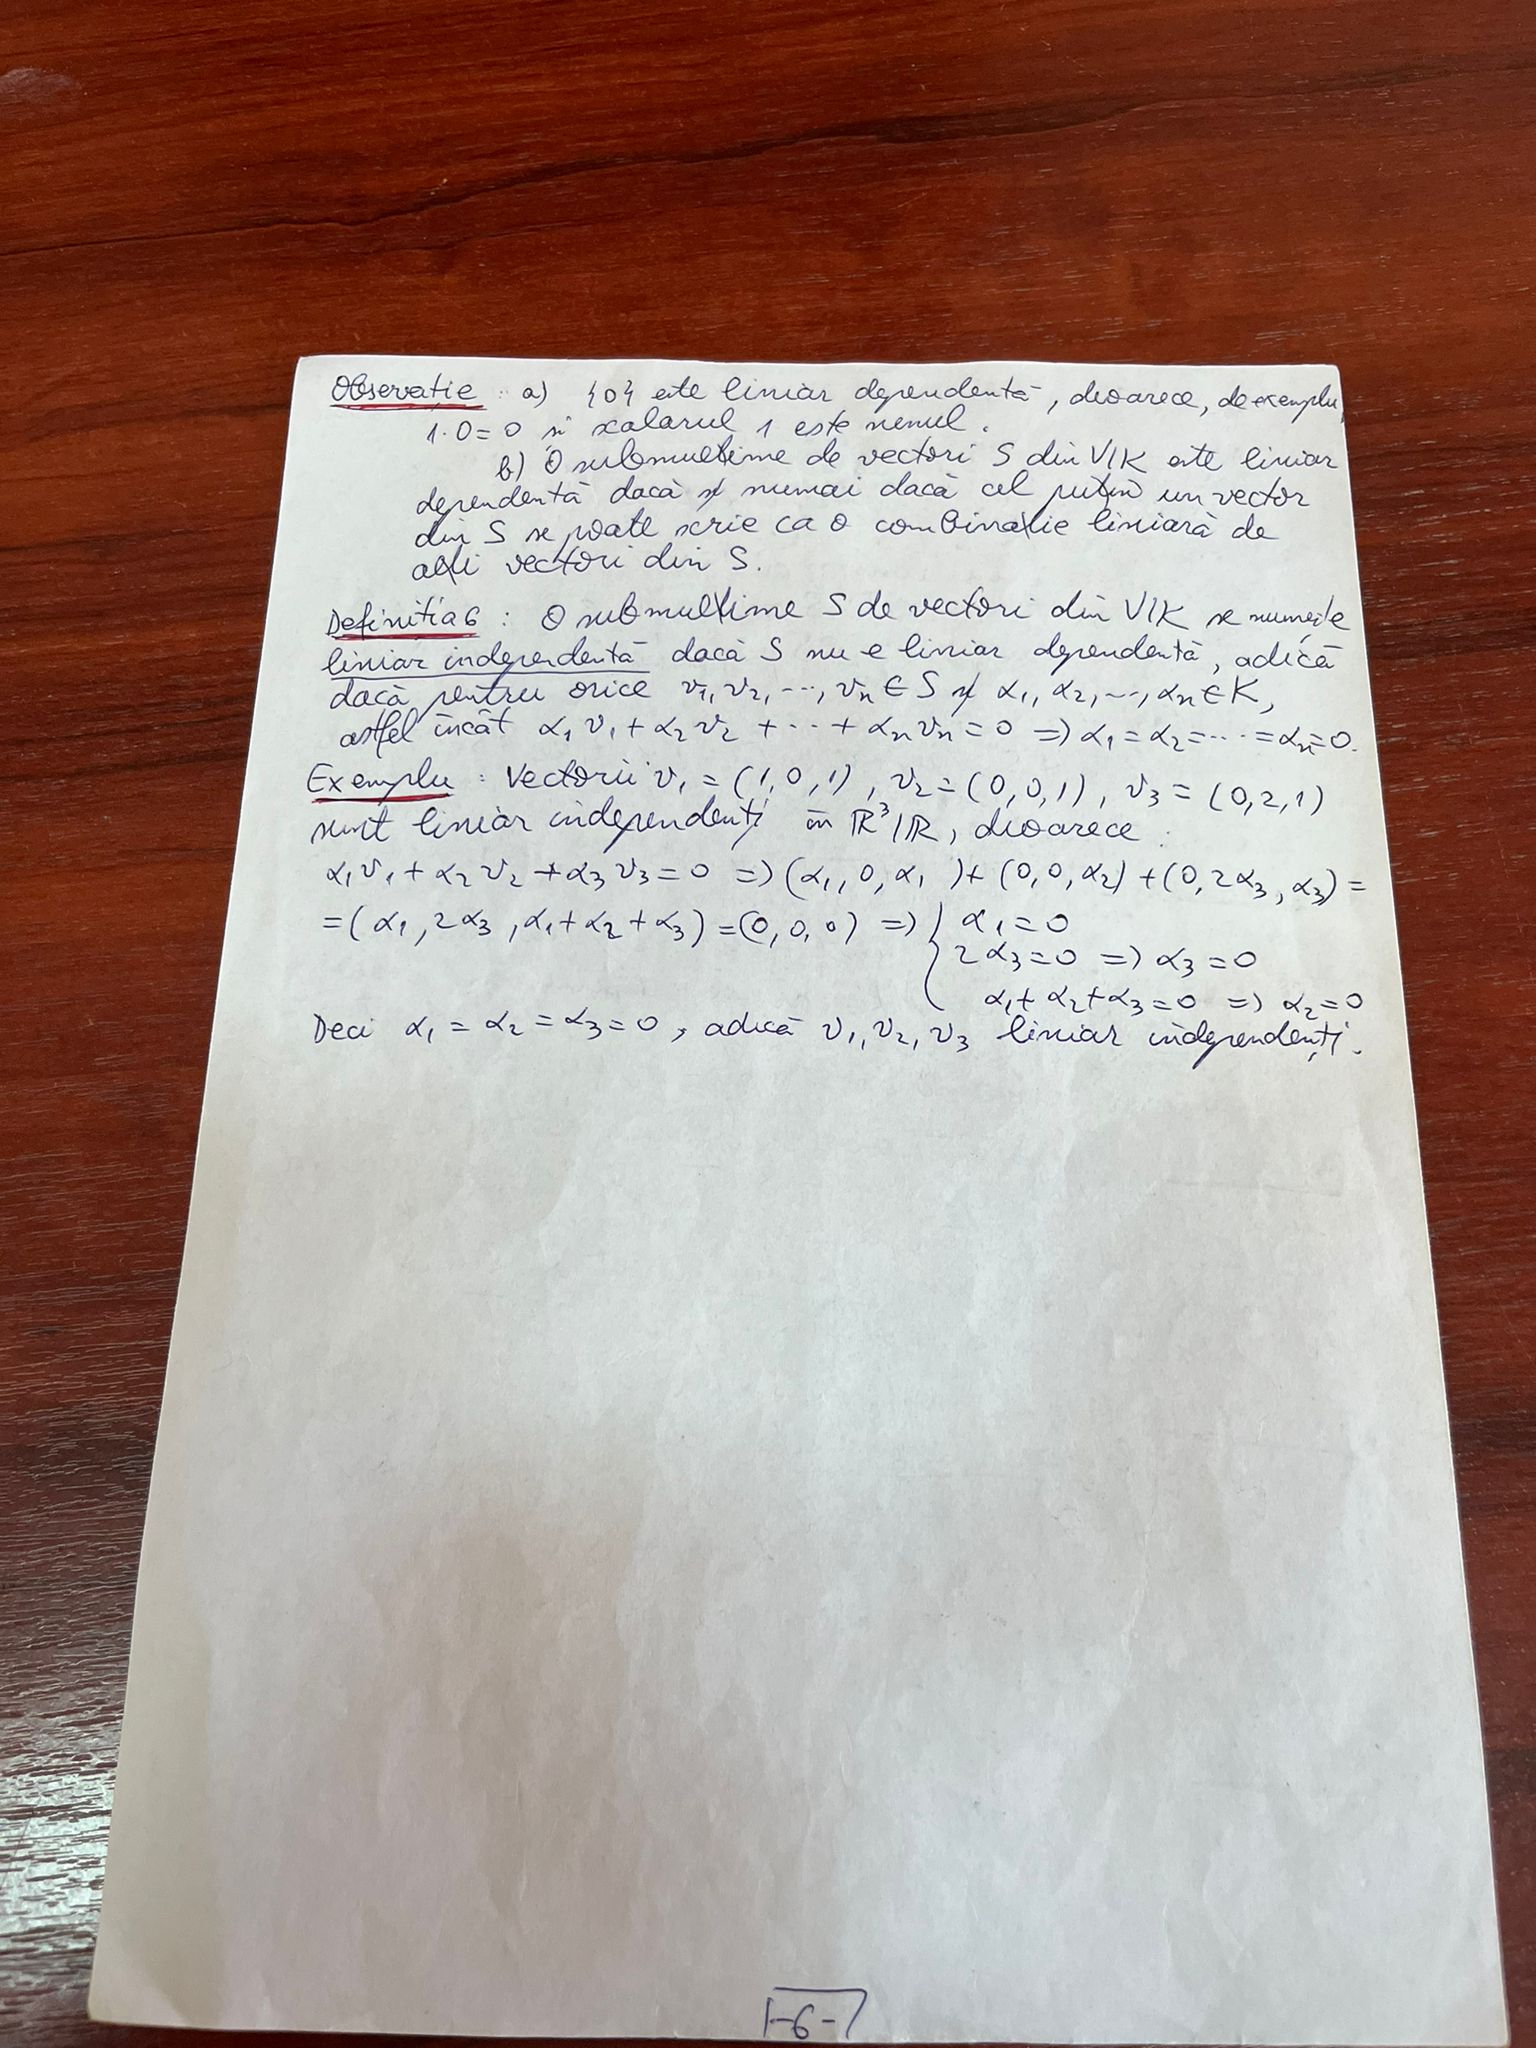 Observație : a) {0} este liniar dependentă, deoarece, de exemplu,
1·0=0 și scalarul 1 este nenul.
b) O submulțime de vectori S din V/K este liniar
dependentă dacă și numai dacă cel puțin un vector
din S se poate scrie ca o combinație liniară de
alți vectori din S.
Definiția 6 : O submulțime S de vectori din V/K se numește
liniar independentă dacă S nu e liniar dependentă, adică
dacă pentru orice v₁, v₂, ..., vₙ ∈ S și α₁, α₂, ..., αₙ ∈ K,
astfel încât α₁v₁ + α₂v₂ + ... + αₙvₙ = 0 => α₁ = α₂ = ... = αₙ = 0.
Exemplu : Vectorii v₁ = (1,0,1), v₂ = (0,0,1), v₃ = (0,2,1)
sunt liniar independenți în ℝ³/ℝ, deoarece :
α₁v₁ + α₂v₂ + α₃v₃ = 0 => (α₁, 0, α₁) + (0, 0, α₂) + (0, 2α₃, α₃) =
= (α₁, 2α₃, α₁ + α₂ + α₃) = (0, 0, 0) => { α₁ = 0
2α₃ = 0 => α₃ = 0
α₁ + α₂ + α₃ = 0 => α₂ = 0
Deci α₁ = α₂ = α₃ = 0, adică v₁, v₂, v₃ liniar independenți.
-6-